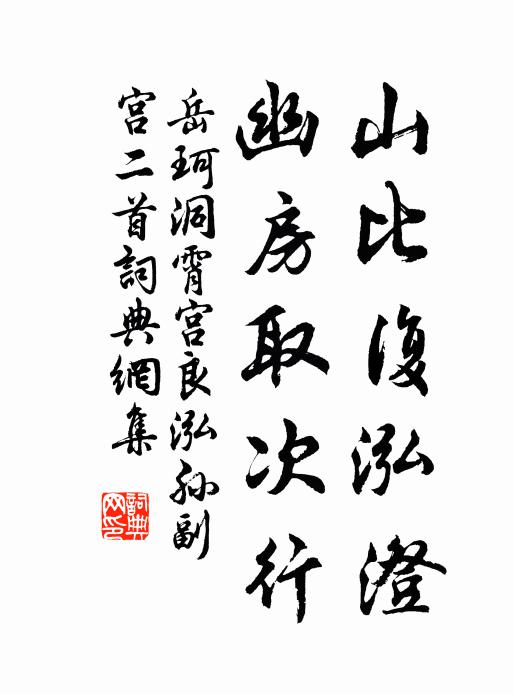 山比復泓澄
幽房取次行
岳珂洞霄宮良泓孫副
宮二首詞典網集
詞典網印